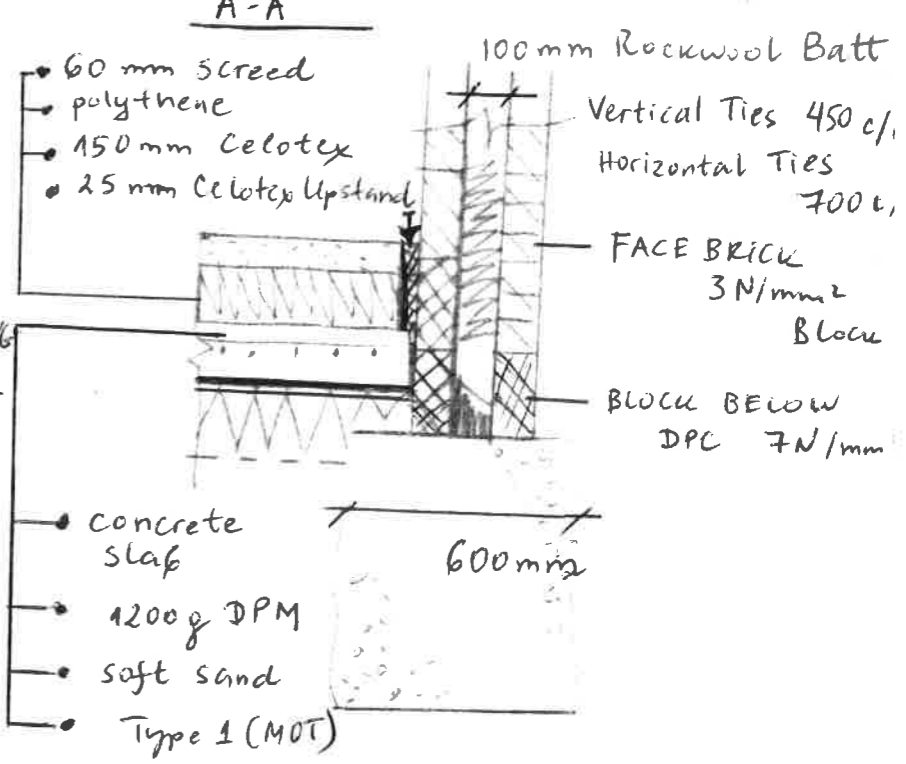 A-A
60 mm screed
polythene
150mm Celotex
25 mm Celotex Upstand
100mm Rockwool Batt
Vertical Ties 450 c/
Horizontal Ties
700 c,
FACE BRICK
3N/mm2
Block
BLOCK BELOW
DPC 7N/mm
concrete
slab
1200g DPM
soft sand
Type 1 (MOT)
600mm